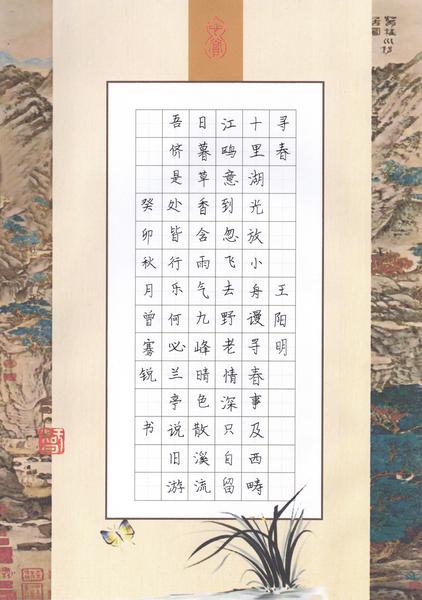 寻春 王阳明
十里湖光放小舟谩寻春事及西畴
江鸥意到忽飞去野老情深只自留
日暮草香含雨气九峰晴色散溪流
吾侪是处皆行乐何必兰亭说旧游
癸卯秋月曾骞锐 书